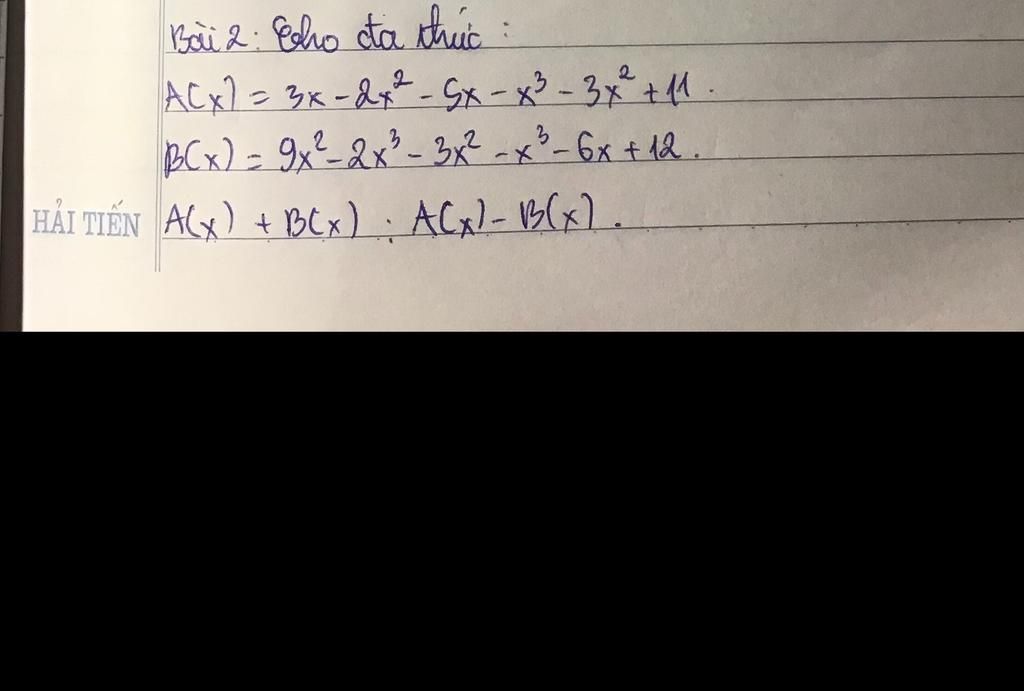 Bài 2: Cho đa thức :
A(x) = 3x - 2x² - 5x - x³ - 3x² + 11 .
B(x) = 9x² - 2x³ - 3x² - x³ - 6x + 12 .
HẢI TIẾN A(x) + B(x) ; A(x) - B(x) .